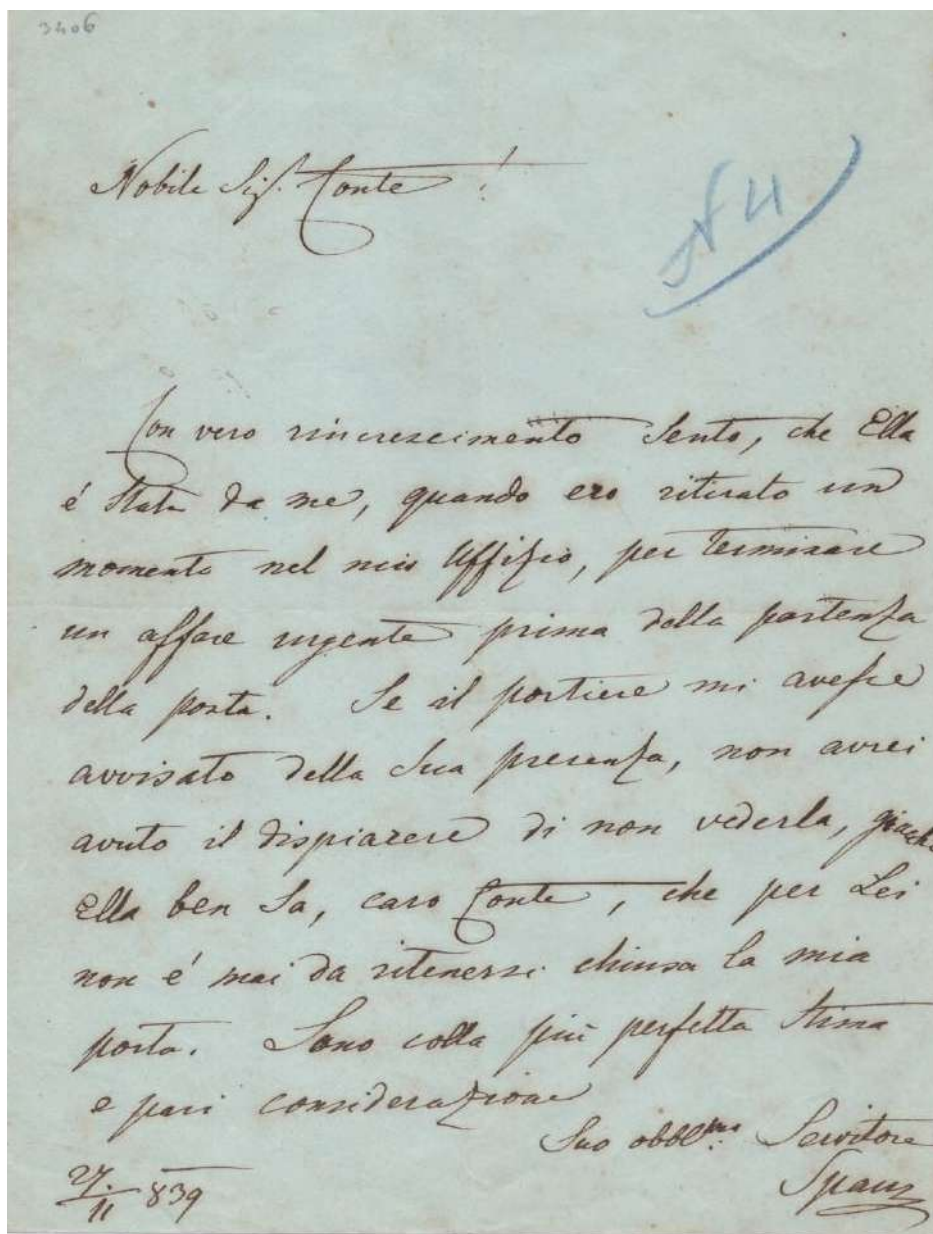 3406
Nobile Sigr. Conte !
N 4
Con vero rincrescimento sento, che Ella
é stata da me, quando ero ritirato un
momento nel mio Uffizio, per terminare
un affare urgente prima della partenza
della posta. Se il portiere mi avesse
avvisato della Sua presenza, non avrei
avuto il dispiacere di non vederla, giacché
Ella ben sa, caro Conte, che per Lei
non é mai da ritenersi chiusa la mia
porta. Sono colla più perfetta stima
e pari considerazione
Suo obblmo. Servitore
Spaur
27/11 839